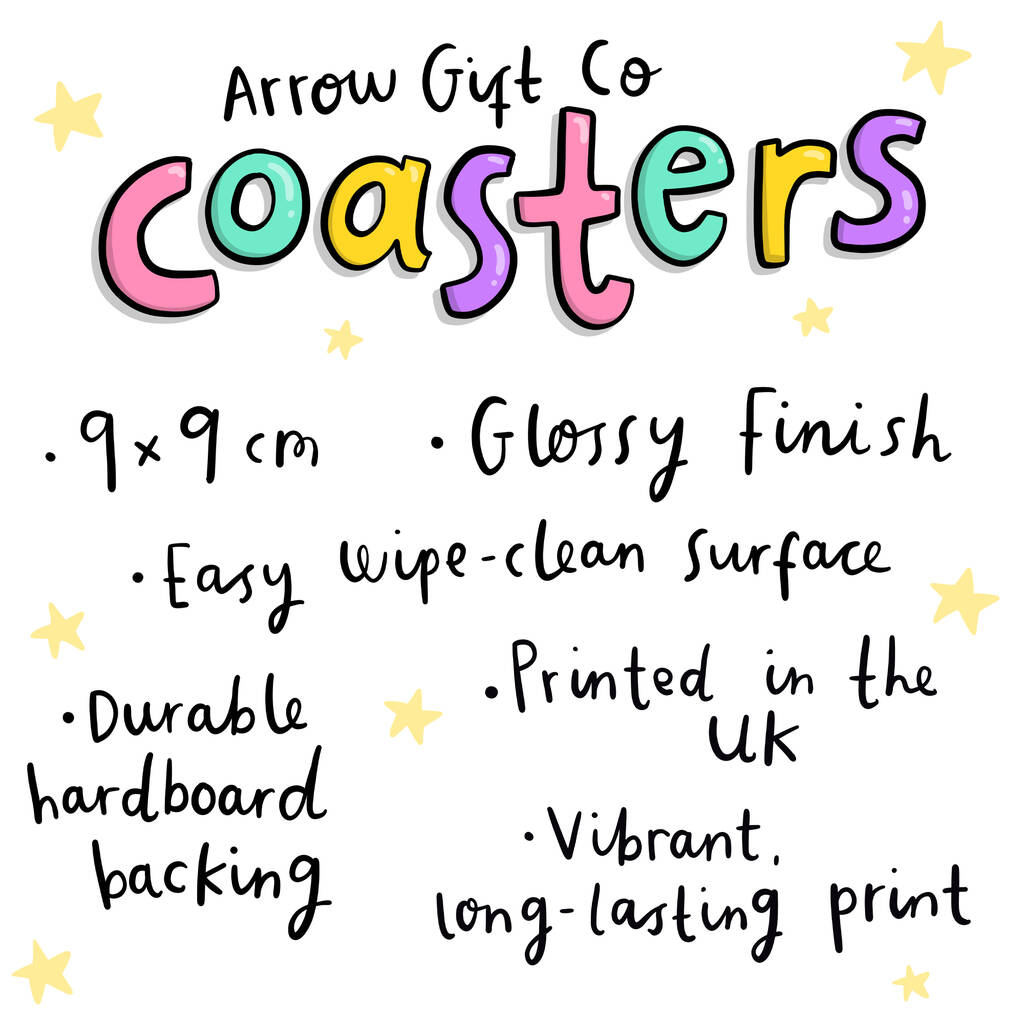 Arrow Gift Co
coasters
• 9 x 9 cm
• Glossy Finish
• Easy wipe-clean surface
• Durable
hardboard
backing
• Printed in the
UK
• Vibrant,
long-lasting print